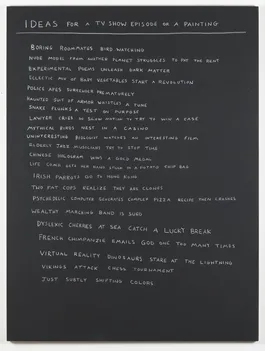 IDEAS FOR A TV SHOW EPISODE OR A PAINTING
BORING ROOMMATES BIRD WATCHING
NUDE MODEL FROM ANOTHER PLANET STRUGGLES TO PAY THE RENT
EXPERIMENTAL POEMS UNLEASH DARK MATTER
ECLECTIC MIX OF VEGETABLES START A REVOLUTION
POLICE APES SURRENDER PREMATURELY
HAUNTED SUIT OF ARMOR WHISTLES A TUNE
SNAKE FLUNKS A TEST ON PURPOSE
LAWYER CRIES IN SLOW MOTION TO TRY TO WIN A CASE
MYTHICAL BIRDS NEST IN A CASINO
UNINTERESTING BIOLOGIST WATCHES AN INTERESTING FILM
ELDERLY JAZZ MUSICIANS TRY TO STOP TIME
CHINESE HOLOGRAM WINS A GOLD MEDAL
LIFE COACH GETS HER HAND STUCK IN A POTATO CHIP BAG
IRISH PARROTS GO TO HONG KONG
TWO FAT COPS REALIZE THEY ARE CLONES
PSYCHEDELIC COMPUTER GENERATES COMPLEX PIZZA RECIPE THEN CRASHES
WEALTHY MARCHING BAND IS SUED
DYSLEXIC CHEFS AT SEA CATCH A LUCKY BREAK
FRENCH CHIMPANZEE EMAILS GOD ONE TOO MANY TIMES
VIRTUAL REALITY DINOSAURS STARE AT THE LIGHTNING
VIKINGS ATTACK CHESS TOURNAMENT
JUST SUBTLY SHIFTING COLORS